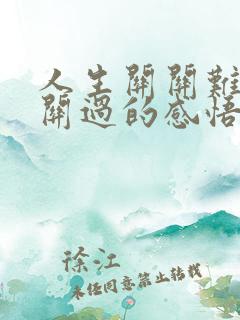 人生關關難
關過的感悟
徐江
未經同意禁止轉載